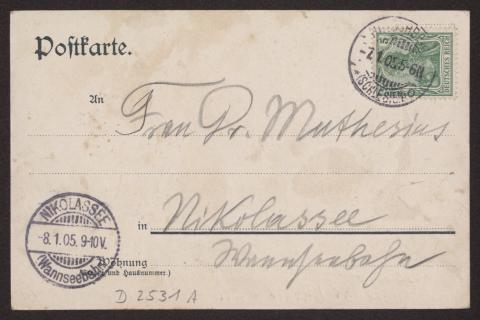 Postkarte.
7.1.05.5-6N.
(SCHLESIEN)
DEUTSCHES REICH
An
Frau Dr. Muthesius
NIKOLASSEE
-8.1.05. 9-10V.
(Wannseebahn)
in Nikolassee
Wannseebahn
Wohnung
(Straße und Hausnummer.)
D 2531 A